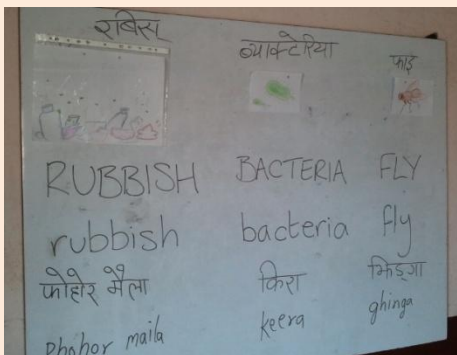 रबिस ब्याक्टेरिया फ्लाइ
RUBBISH BACTERIA FLY
rubbish bacteria fly
फोहोर मैला किरा झिङ्गा
phohor maila keera ghinga